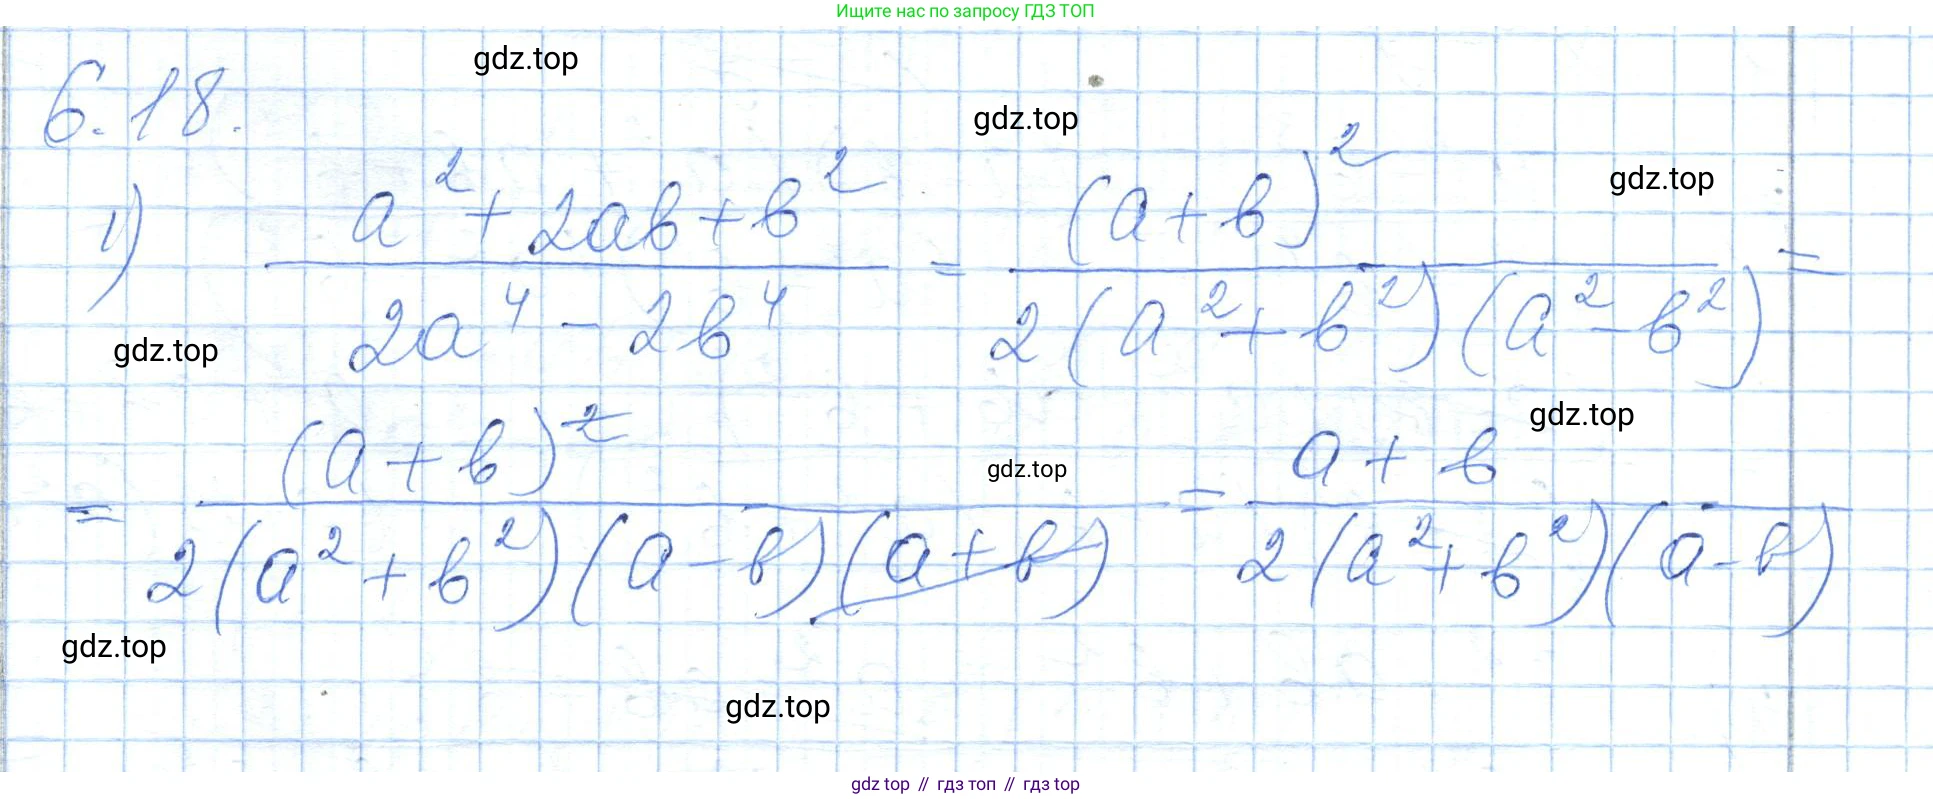 Ищите нас по запросу ГДЗ ТОП
gdz.top
6.18.
gdz.top
gdz.top
1) (a² + 2ab + b²)/(2a⁴ - 2b⁴) = (a + b)²/(2(a² + b²)(a² - b²)) =
gdz.top
gdz.top
= (a + b)²/(2(a² + b²)(a - b)(a + b)) = (a + b)/(2(a² + b²)(a - b))
gdz.top
gdz.top
gdz.top
gdz top // гдз топ // gdz.top